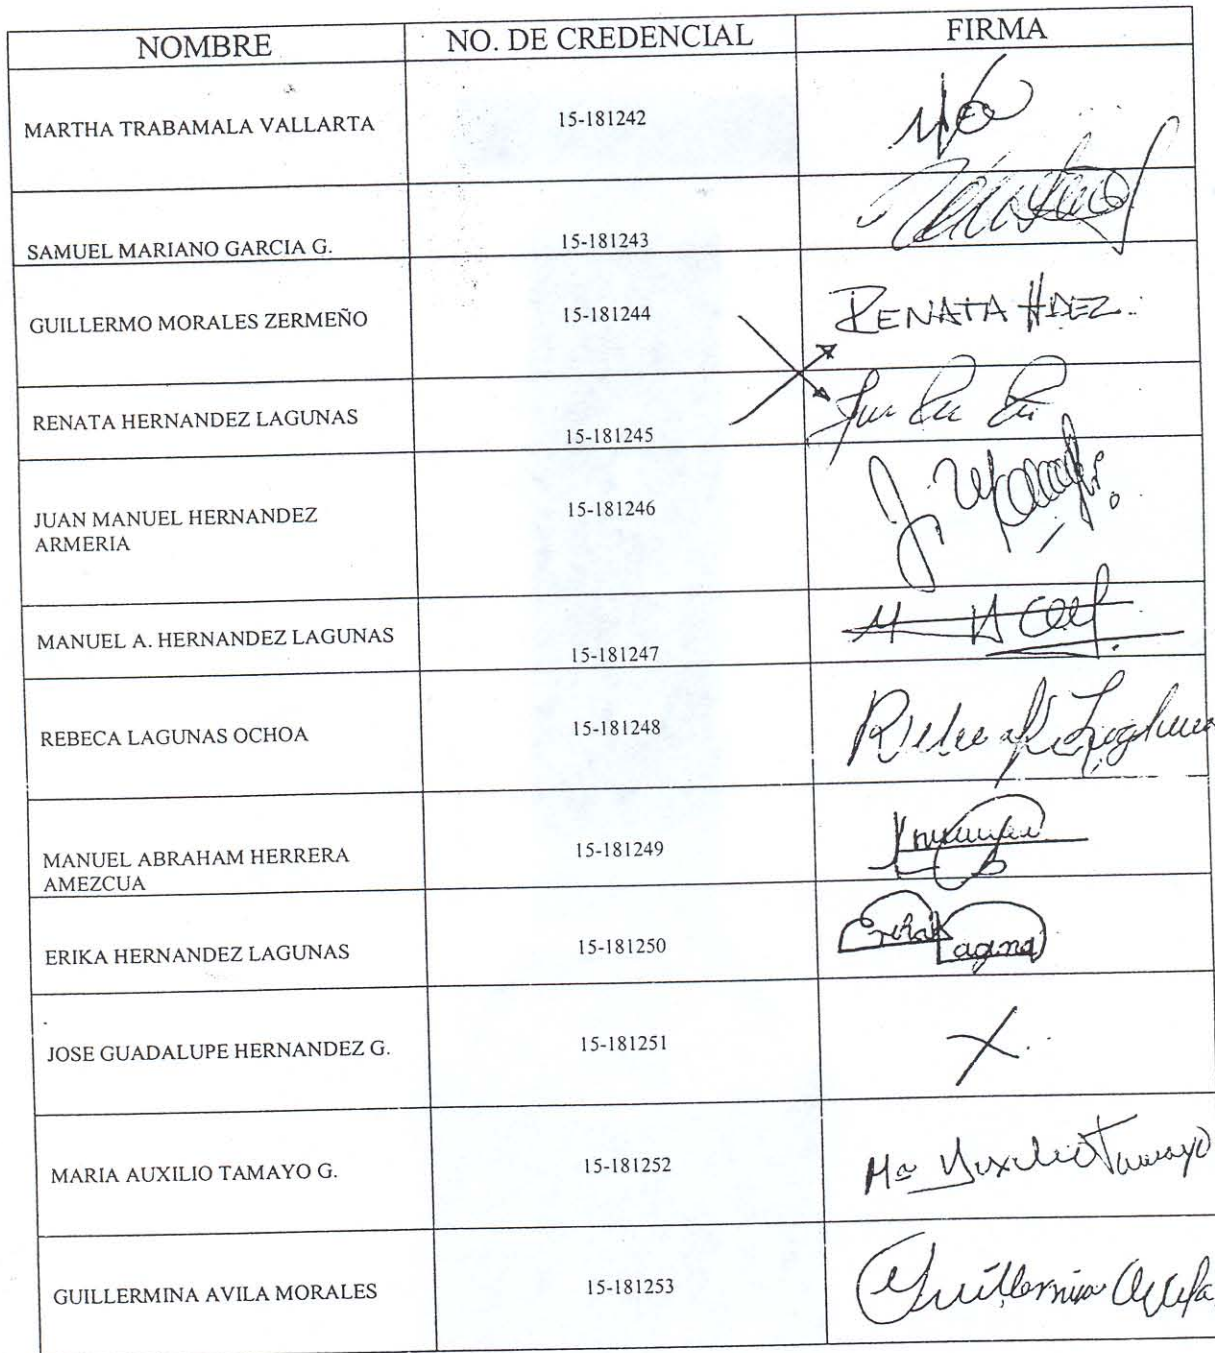 NOMBRE NO. DE CREDENCIAL FIRMA
MARTHA TRABAMALA VALLARTA 15-181242
SAMUEL MARIANO GARCIA G. 15-181243
GUILLERMO MORALES ZERMEÑO 15-181244 RENATA HDEZ.
RENATA HERNANDEZ LAGUNAS 15-181245
JUAN MANUEL HERNANDEZ
ARMERIA 15-181246
MANUEL A. HERNANDEZ LAGUNAS 15-181247
REBECA LAGUNAS OCHOA 15-181248
MANUEL ABRAHAM HERRERA
AMEZCUA 15-181249
ERIKA HERNANDEZ LAGUNAS 15-181250 Erika Lagunas
JOSE GUADALUPE HERNANDEZ G. 15-181251 X
MARIA AUXILIO TAMAYO G. 15-181252 Ma Auxilio Tamayo
GUILLERMINA AVILA MORALES 15-181253 Guillermina Avila